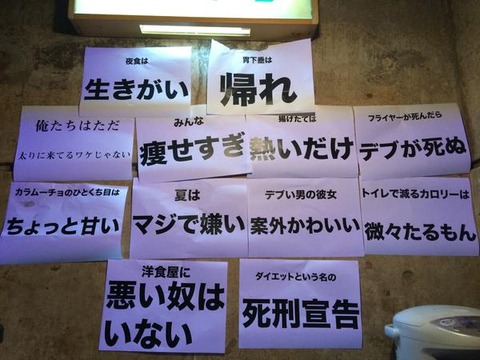 夜食は
生きがい
胃下垂は
帰れ
俺たちはただ
太りに来てるワケじゃない
みんな
痩せすぎ
揚げたては
熱いだけ
フライヤーが死んだら
デブが死ぬ
カラムーチョのひとくち目は
ちょっと甘い
夏は
マジで嫌い
デブい男の彼女
案外かわいい
トイレで減るカロリーは
微々たるもん
洋食屋に
悪い奴は
いない
ダイエットという名の
死刑宣告